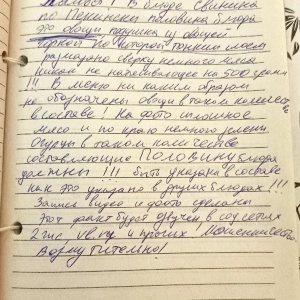 ! В блюде Свинина
по Пекински половина блюда
это овощи
горкой на которой тонким слоем
размазано сверху немного мяса
никак не на 500 грамм
!!! В меню ни каким образом
не обозначены овощи в таком количестве
в составе! На фото сплошное
мясо и по краю немного зелени
Огурцы в таком количестве
составляющие ПОЛОВИНУ блюда
должны!!! быть указаны в составе
как это указано в других блюдах!!!
Запись видео и фото сделаны
Этот факт будет озвучен в соц сетях
2гис, и прочих! Мошенничество
Возмутительно!